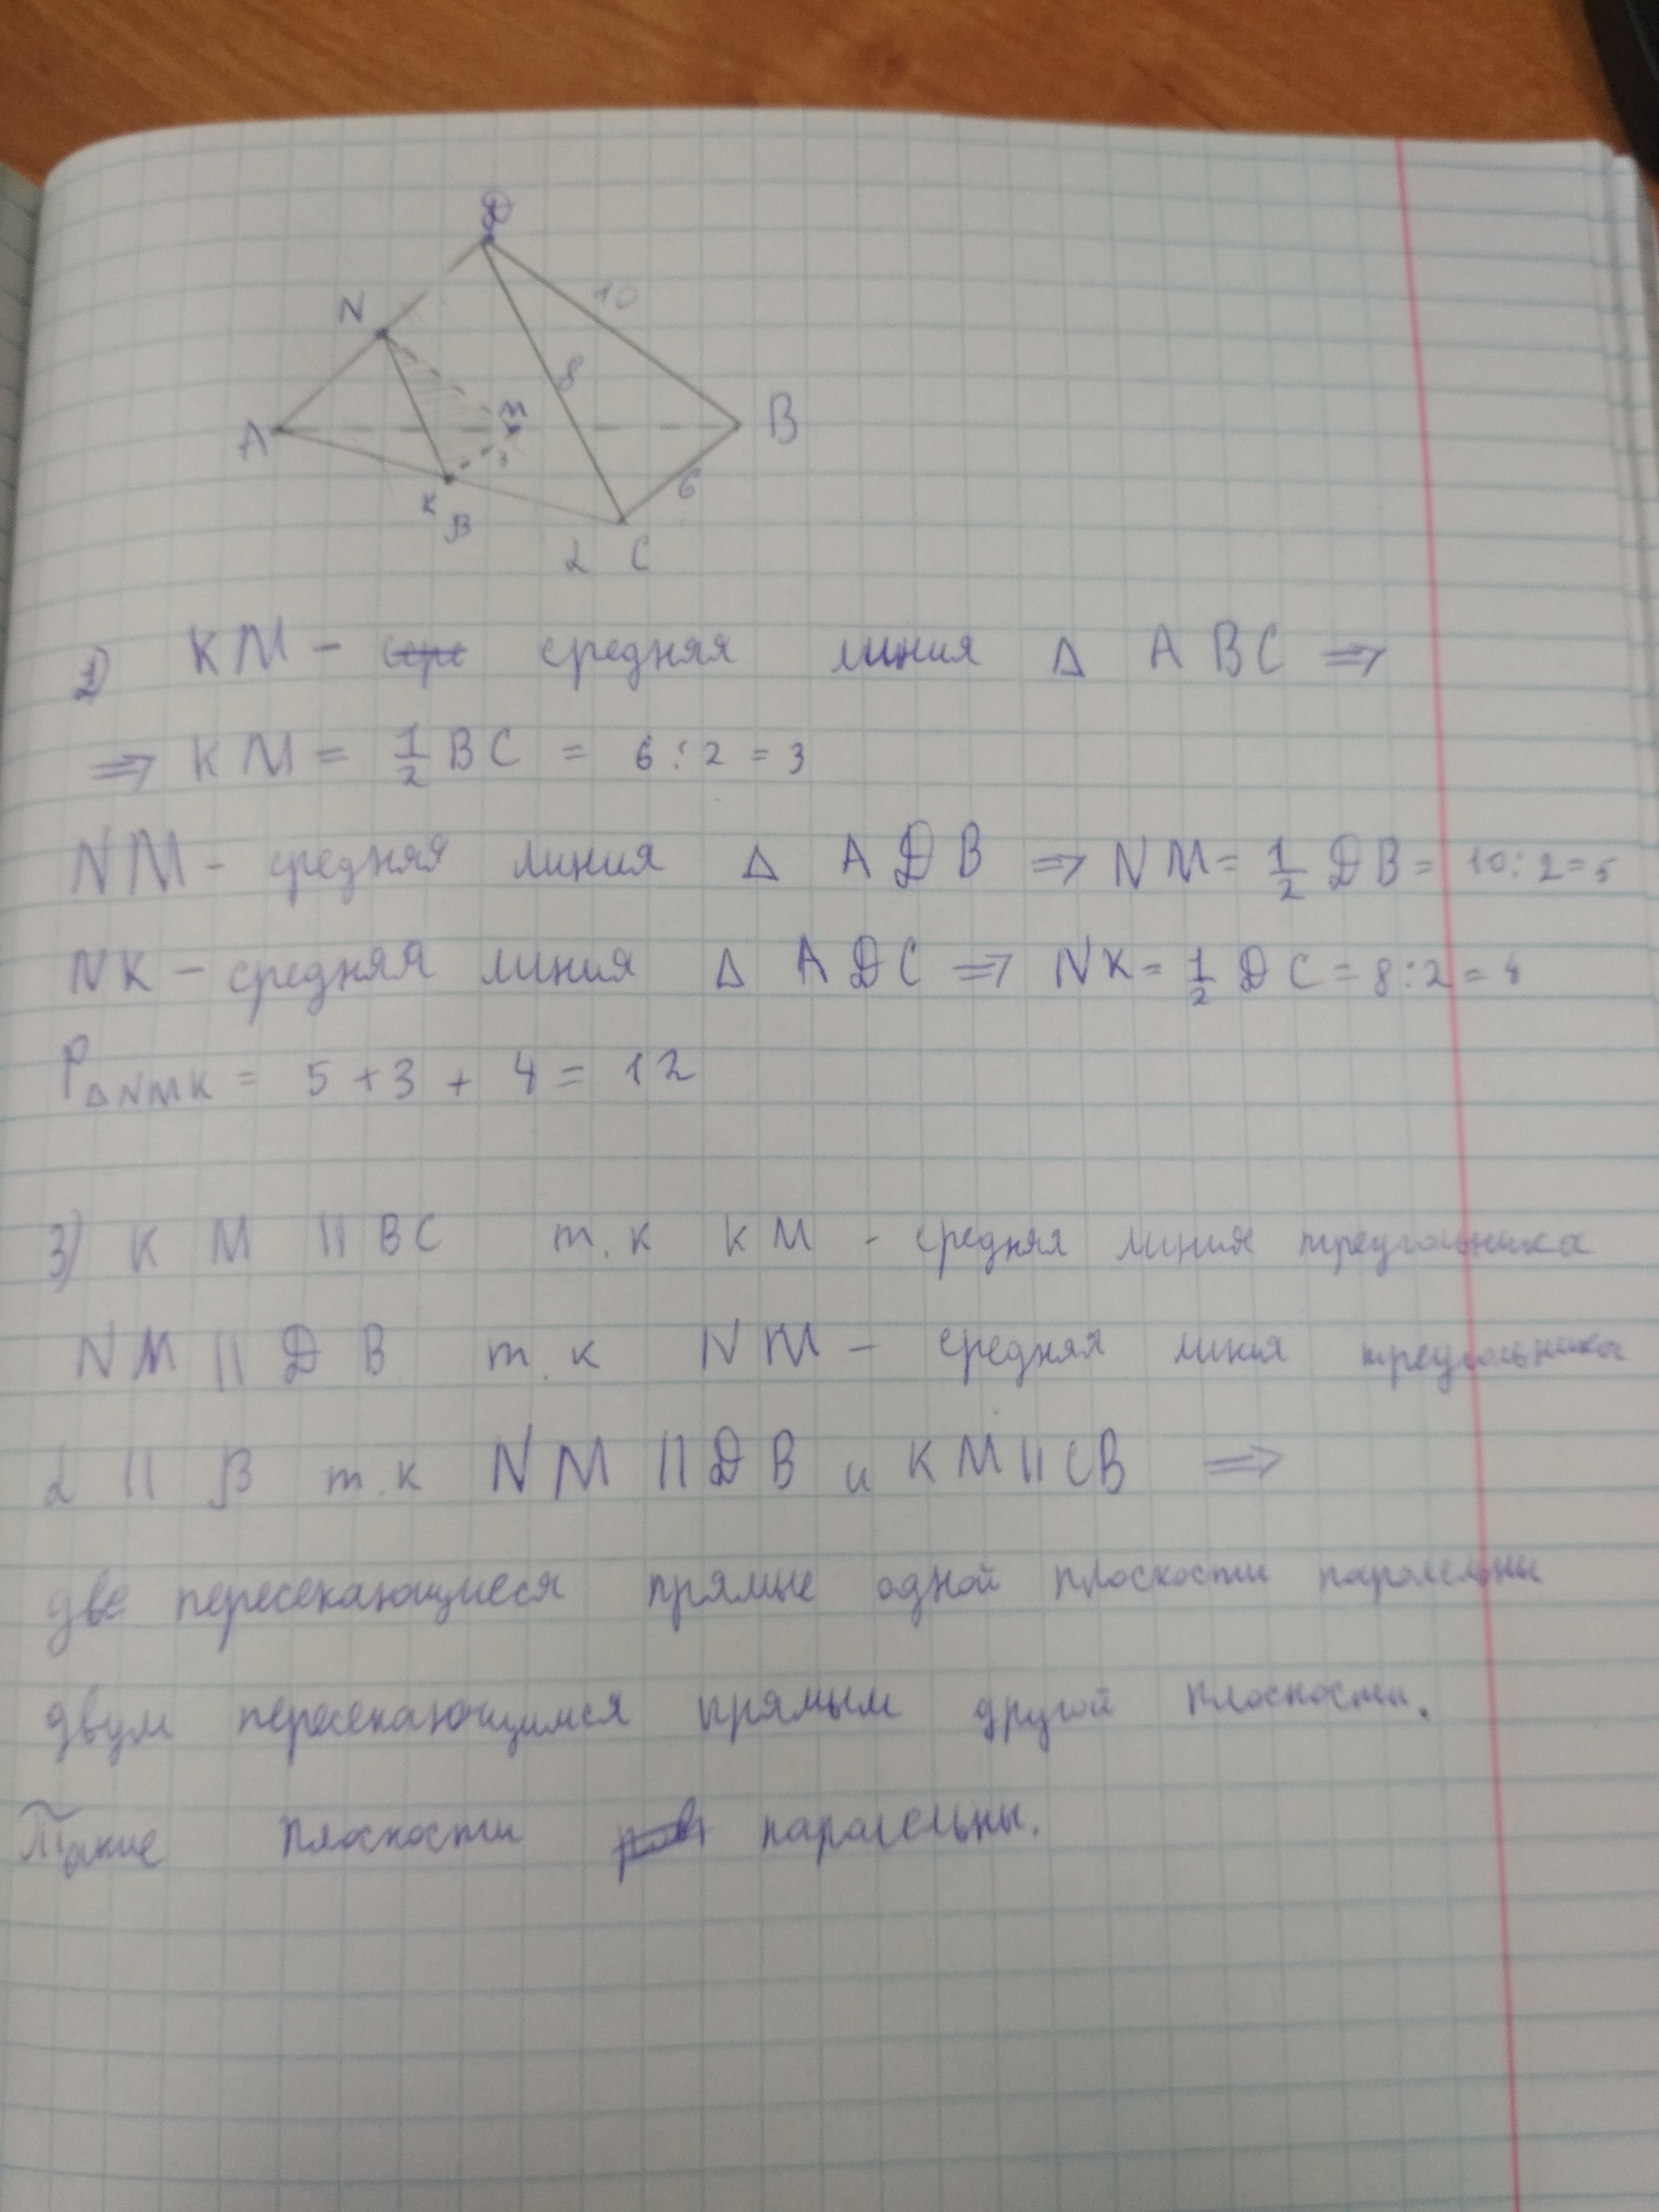 D
N
10
8
A
M
B
3
6
K
β
α C
2) KM - средняя линия Δ ABC ⇒
⇒ KM = 1/2 BC = 6 : 2 = 3
NM - средняя линия Δ ADB ⇒ NM = 1/2 DB = 10 : 2 = 5
NK - средняя линия Δ ADC ⇒ NK = 1/2 DC = 8 : 2 = 4
PΔNMK = 5 + 3 + 4 = 12
3) KM || BC т.к KM - средняя линия треугольника
NM || DB т.к NM - средняя линия треугольника
α || β т.к NM || DB и KM || CB ⇒
две пересекающиеся прямые одной плоскости паралельны
двум пересекающимся прямым другой плоскости.
Такие плоскости паралельны.